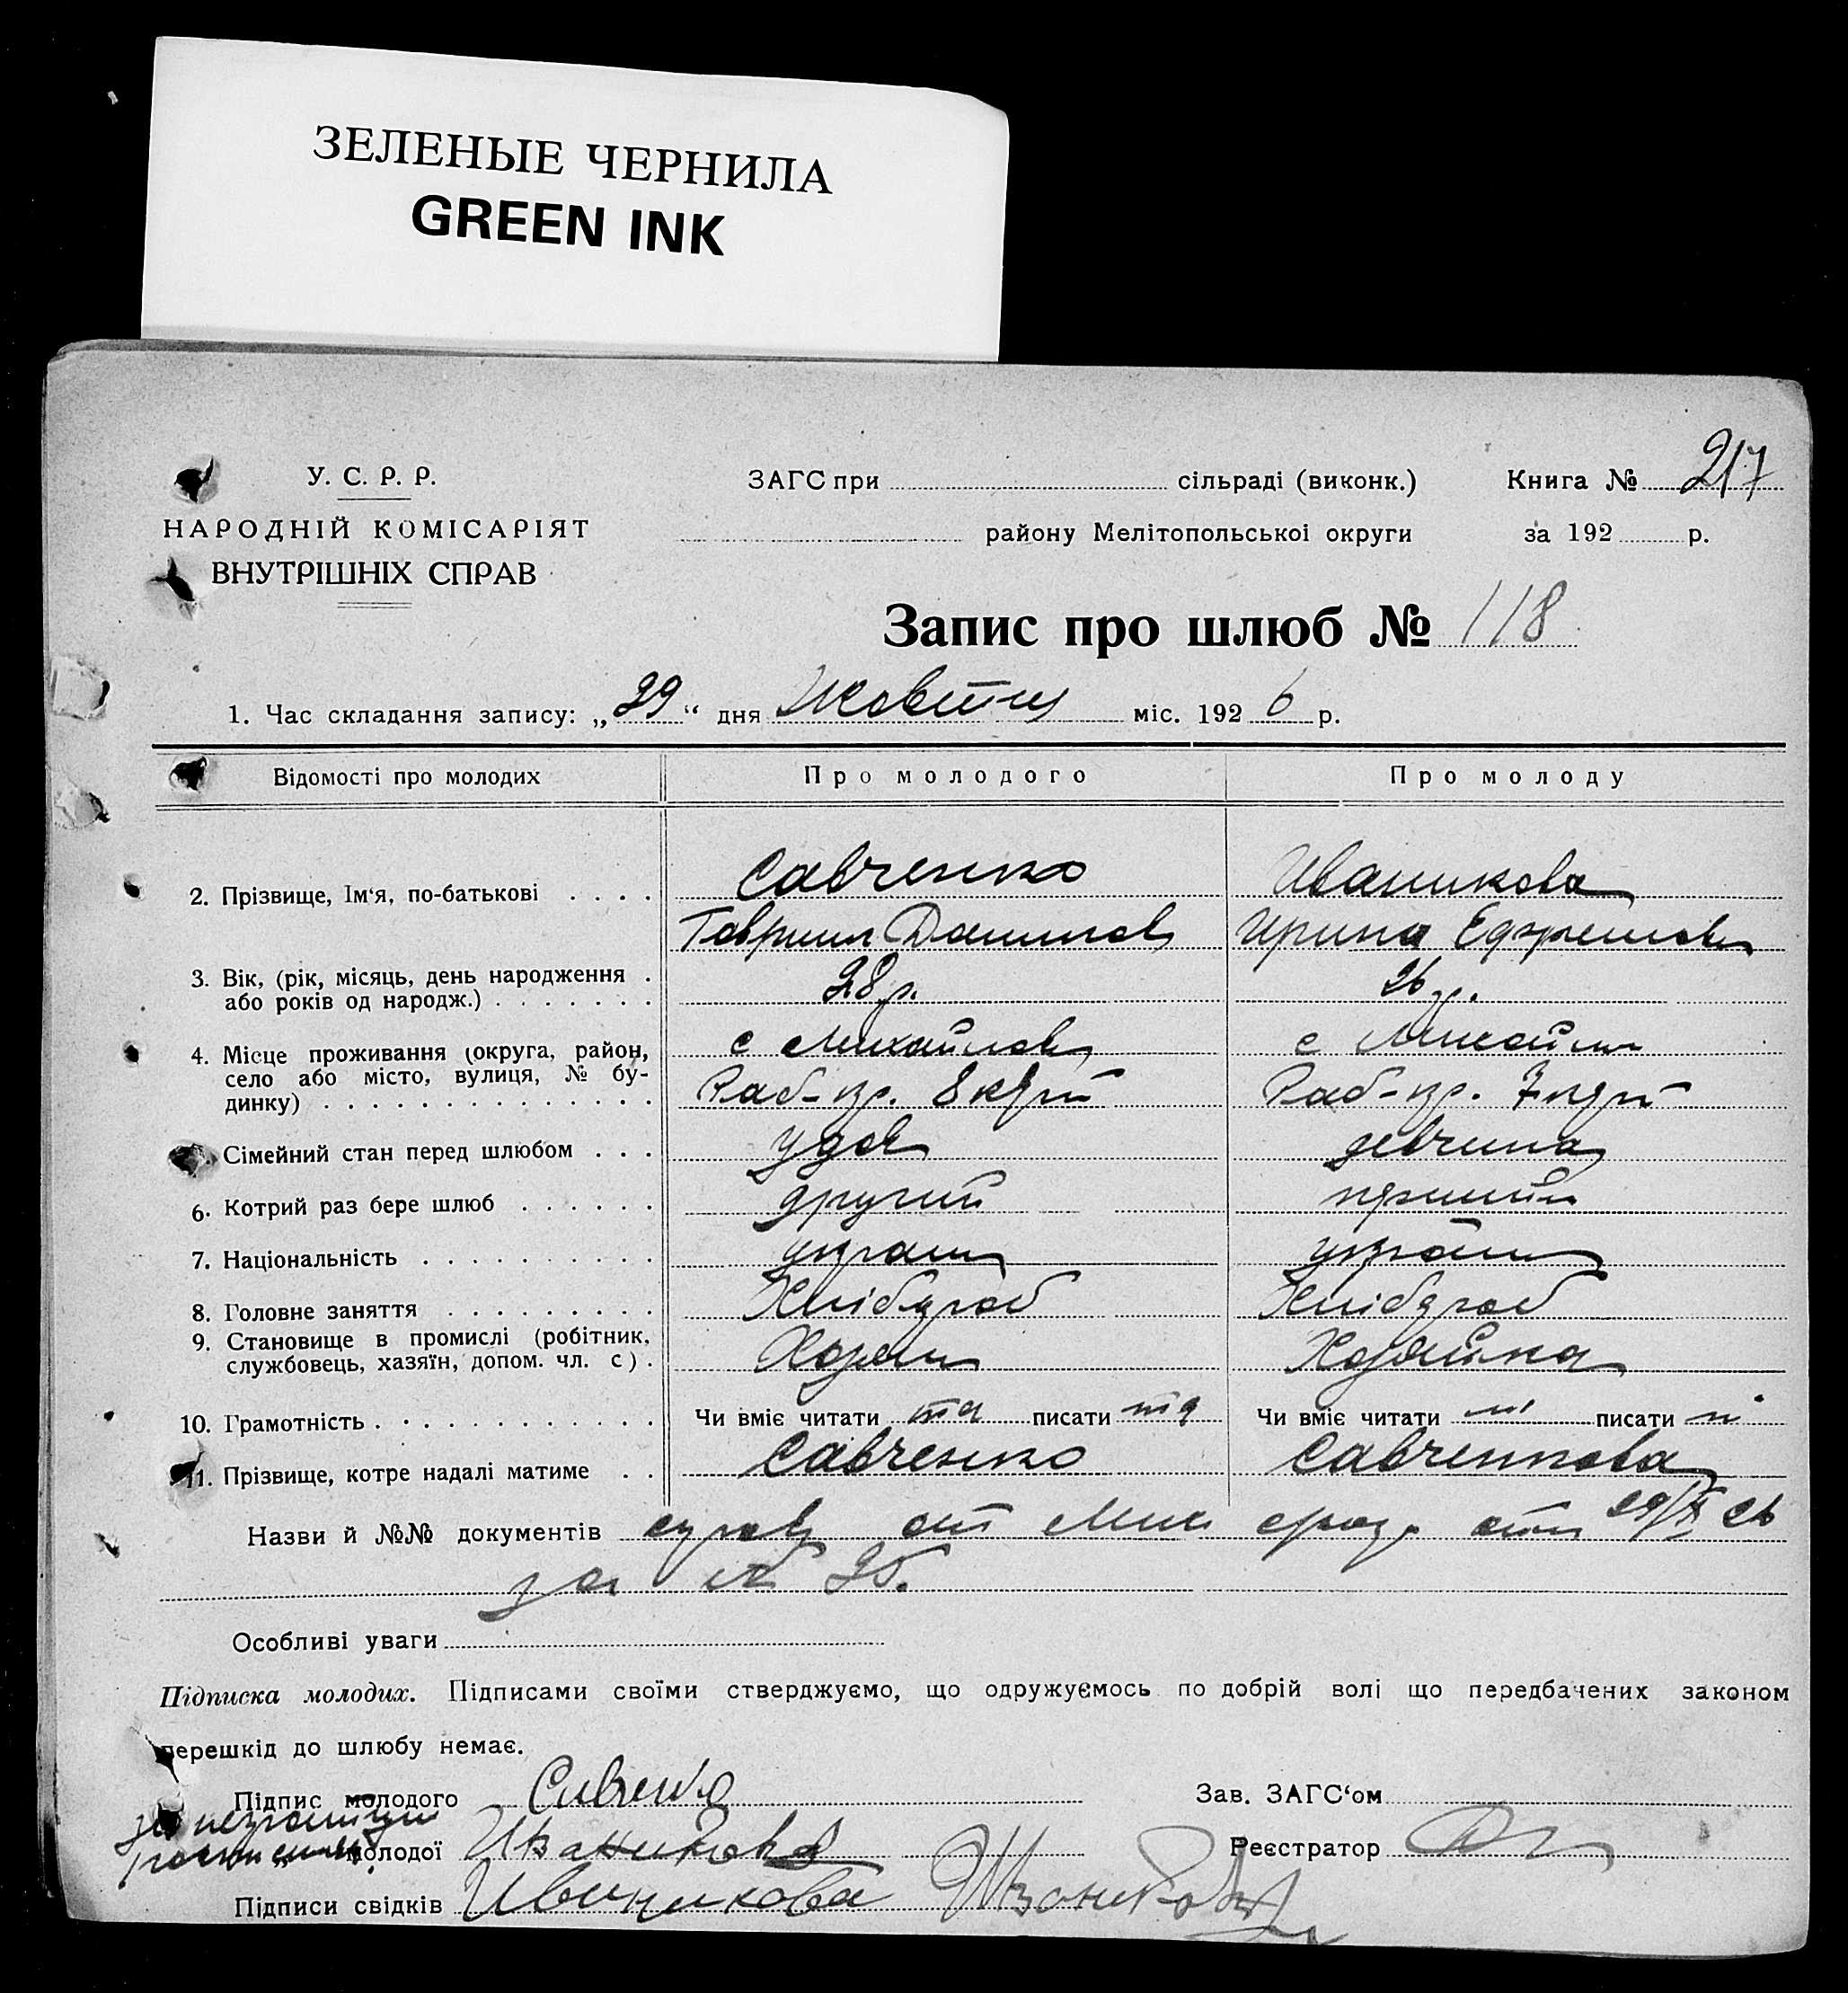 ЗЕЛЕНЫЕ ЧЕРНИЛА
GREEN INK
У. С. Р. Р.
НАРОДНІЙ КОМІСАРІЯТ
ВНУТРІШНІХ СПРАВ
ЗАГС при сільраді (виконк.)
району Мелітопольської округи
Книга № 217
за 192 р.
Запис про шлюб № 118
1. Час складання запису: „29“ дня Жовтня міс. 1926 р.
Відомості про молодих Про молодого Про молоду
2. Прізвище, Ім‘я, по-батькові Савченко Иваникова
Гавриил Данилов Ирина Ефремов
3. Вік, (рік, місяць, день народження або років од народж.) 28 р. 26 р.
4. Місце проживання (округа, район, село або місто, вулиця, № будинку) с Михайлов с Михайлов
Раб-кр. 8 Раб-кр. 7
Сімейний стан перед шлюбом удов девчина
6. Котрий раз бере шлюб другий перший
7. Національність украин украин
8. Головне заняття Хлібороб Хлібороб
9. Становище в промислі (робітник, службовець, хазяїн, допом. чл. с). Хозяин Хозяйка
10. Грамотність Чи вміє читати та писати та Чи вміє читати ні писати ні
11. Прізвище, котре надалі матиме Савченко Савченкова
Назви й №№ документів от Мих от 29/X 26
за № 25.
Особливі уваги
Підписка молодих. Підписами своїми стверджуємо, що одружуємось по добрій волі що передбачених законом
перешкід до шлюбу немає.
Підпис молодого Савченко Зав. ЗАГС‘ом
за неграмотную
молодої Иваникова Реєстратор
Підписи свідків Иваникова